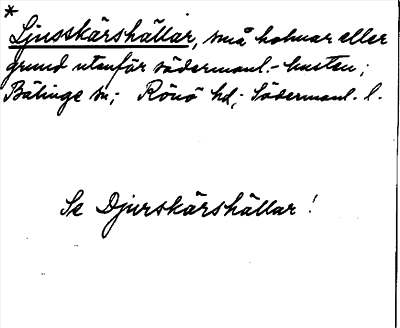 *
Ljusskärshällar, små holmar eller
grund utanför södermanl.-kusten;
Bälinge sn; Rönö hd; Södermanl. l.
Se Djurskärshällar!